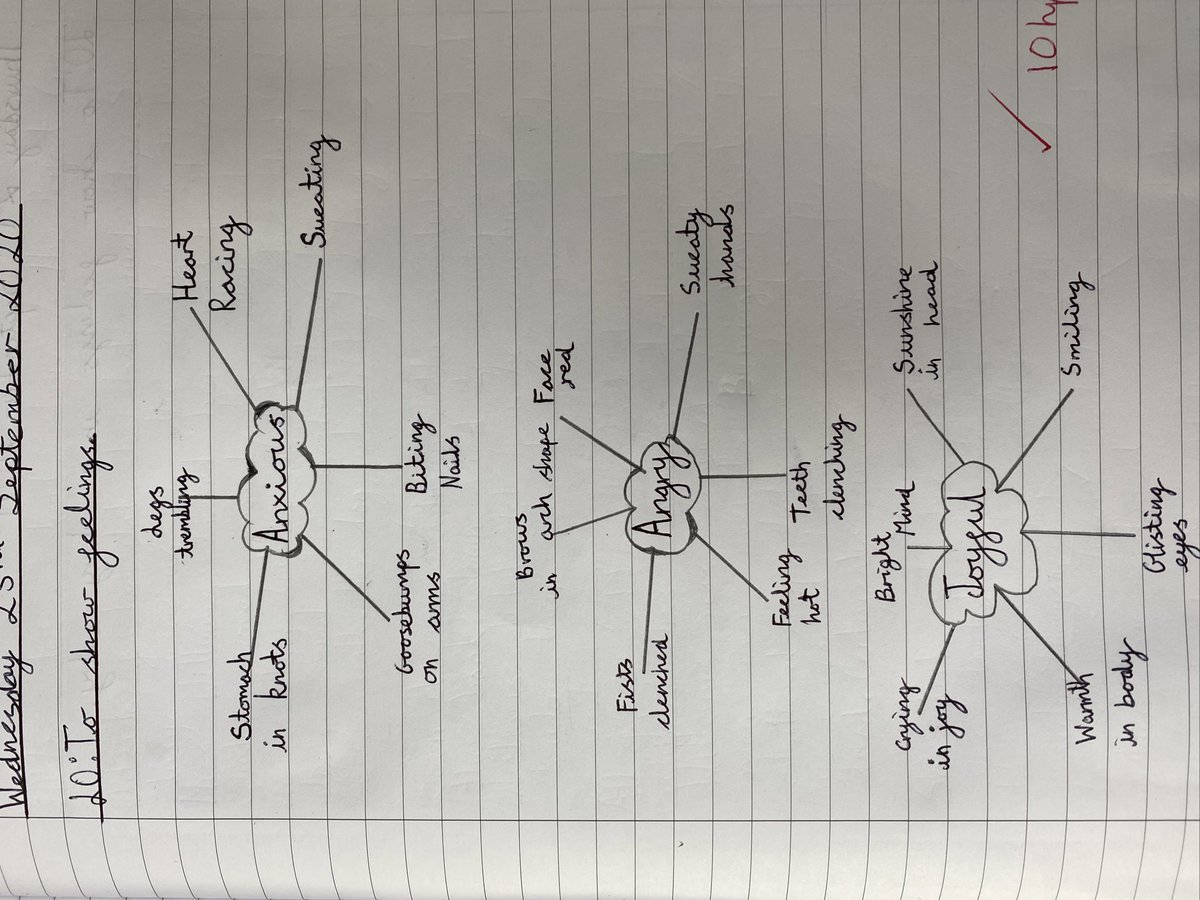 Wednesday 23rd September 2020
LO: To show feelings.
Legs
trembling
Heart
Racing
Stomach
in knots
Anxious
Sweating
Goosebumps
on arms
Biting
Nails
Brows
in arch shape
Face
red
Fists
clenched
Angry
Sweaty
hands
Feeling
hot
Teeth
clenching
Bright
Mind
Sunshine
in head
Crying
in joy
Joyful
Smiling
Warmth
in body
Glisting
eyes
✓ 10